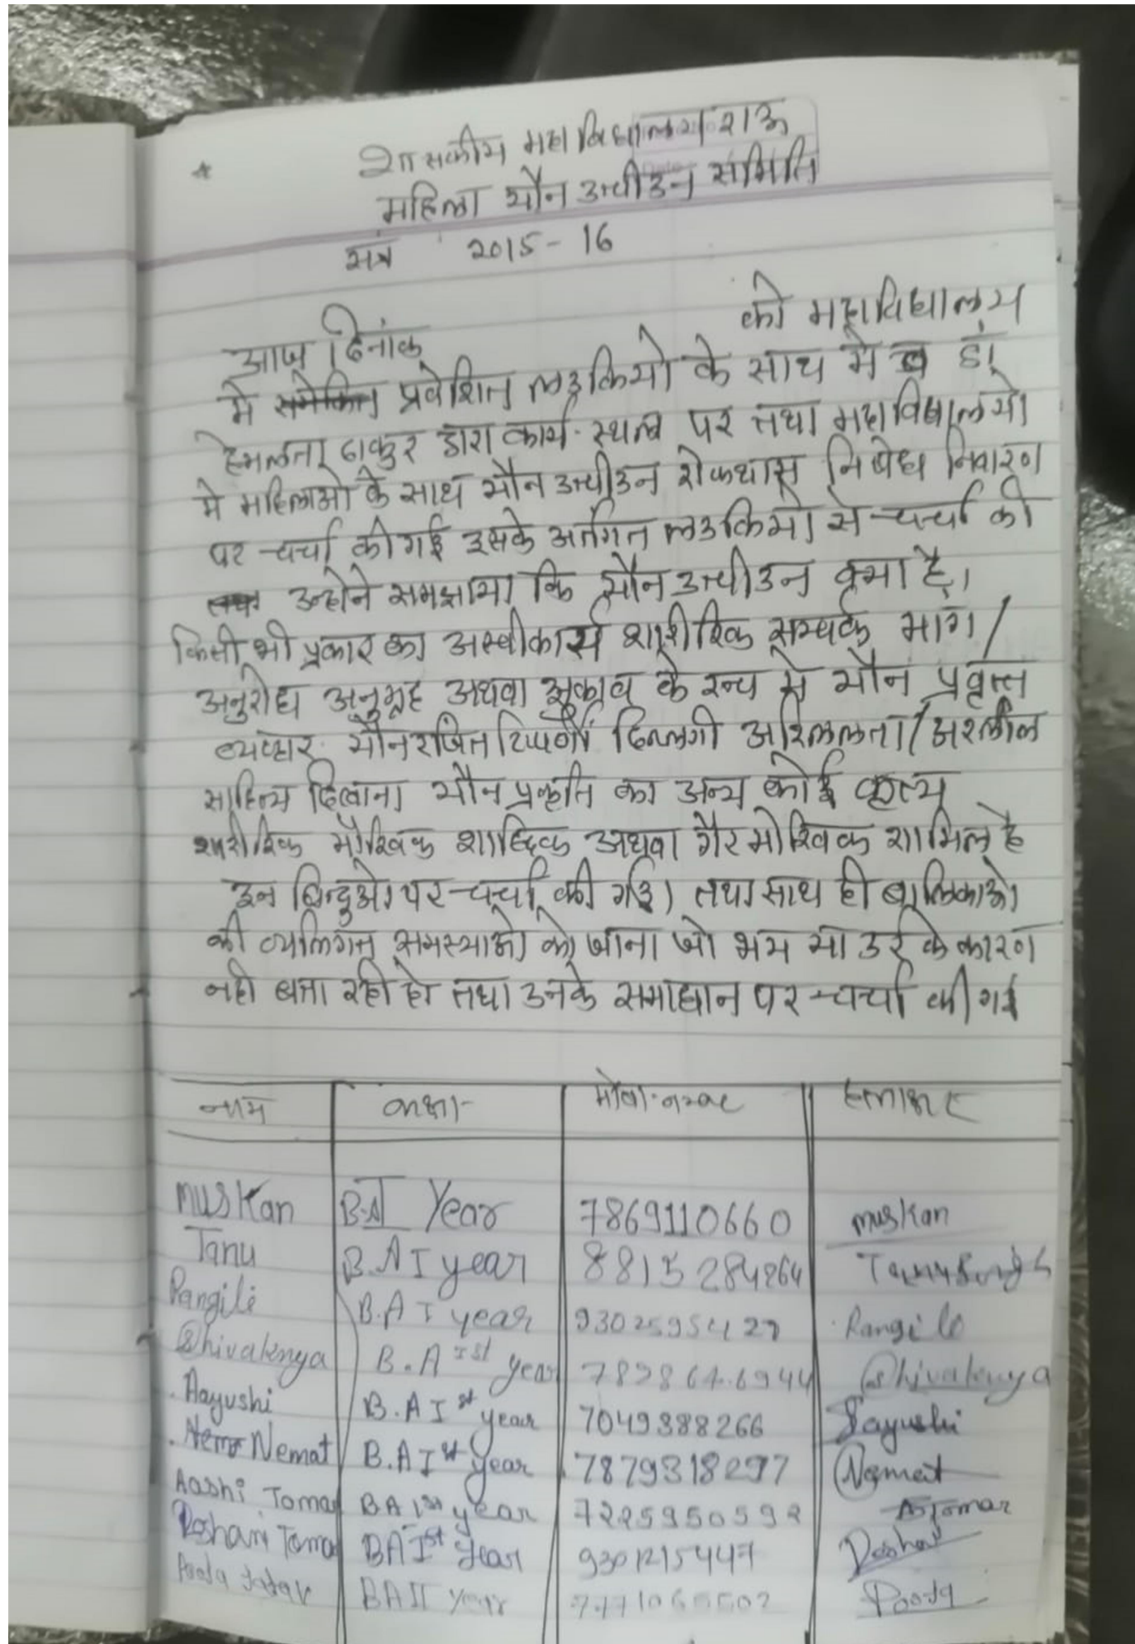 शासकीय महाविद्यालय राऊ
महिला यौन उत्पीडन समिति
सत्र 2015-16
आज दिनांक को महाविद्यालय
मे प्रवेशित लडकियो के साथ मे डॉ.
हेमलता ठाकुर द्वारा कार्य स्थल पर तथा महाविद्यालयो
मे महिलाओ के साथ यौन उत्पीडन रोकथाम निषेध निवारण
पर चर्चा की गई इसके अर्तगत लडकियो से चर्चा की
उन्होने समझाया कि यौन उत्पीडन क्या है।
किसी भी प्रकार का अस्वीकार्य शारीरिक सम्पर्क मांग/
अनुरोध अनुग्रह अथवा झुकाव के रूप मे यौन प्रवृत्त
व्यवहार यौनरंजित टिप्पणी दिल्लगी अश्लिलता/अश्लील
साहित्य दिखाना यौन प्रकृति का अन्य कोई कृत्य
शारीरिक मौखिक शाब्दिक अथवा गैर मौखिक शामिल है
इन बिन्दुओ पर चर्चा की गई। तथा साथ ही बालिकाओ
की व्यक्तिगत समस्याओ को जाना जो भय या डर के कारण
नही बता रही हो तथा उनके समाधान पर चर्चा की गई
नाम कक्षा मोबा. नम्बर हस्ताक्षर
Muskan B.A I Year 7869110660 muskan
Tanu B.A I year 8815284264
Rangile B.A I year 9302595429 Rangile
Shivaknya B.A Ist year 7828646944 Shivaknya
Aayushi B.A Ist year 7049388266 Aayushi
Nemat B.A Ist year 7879318297 Nemat
Aashi Tomar BA Ist year 7225950592 ATomar
Tomar BA Ist year 9301215447
Pooja BA II year 7771065502 Pooja